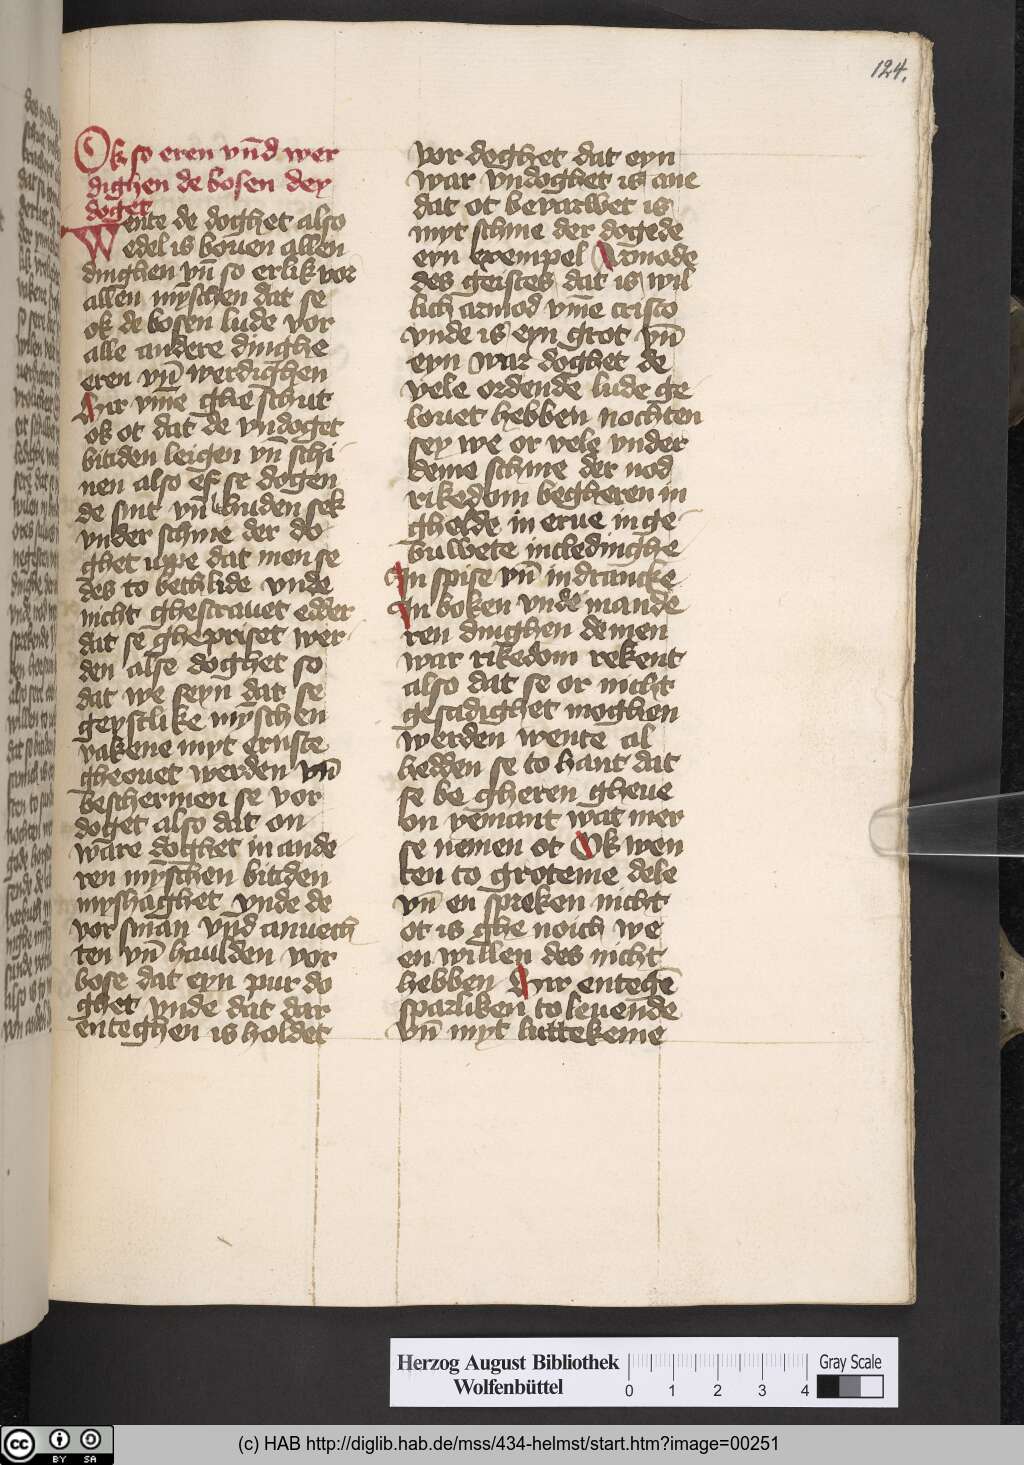 124.
Ok so eren vn̄d wer
dighen de bosen dey
doget
Wente de doghet also
edel is bouen allen
dinghen vn̄ so erlik vor
allen mȳschen dat se
ok de bosen lude vor
alle andere dinghe
eren vn̄ werdighen
Hir vm̄e ghe schut
ok ot dat de vndoget
bitiden leigen vn̄ schi
nen also ef se dogen
de sint vn̄ buden sek
vnder schine der do
ghet uppe dat men se
des to bethlide vnde
nicht ghestrauet edder
dat se ghepriset wer
den alse doghet so
dat we seyn dat se
geystlike mȳschen
vakene myt ernste
gheouet werden vn̄
beschermen se vor
doget also dat on
ware doghet in ande
ren mȳschen bitiden
myshaghet vnde de
vor sman vnd anuech
ten vn̄ haulden vor
bose dat eyn pur do
ghet vnde dat dar
enteghen is holdet
vor doghet dat eyn
war vndoghet is ane
dat ot bevarwet is
myt schine der dogede
eyn exempel Armode
des geistes dat is wil
lich armod vm̄e cristo
vnde is eyn grot vn̄
eyn war doghet de
vele ordende lude ge
louet hebben nochten
sey we or vele vnder
deme schine der nod
rikedom begheren in
ghelde in erue in ge
buwete in cledinghe
In spise vn̄ in drancke
In boken vnde in ande
ren dinghen de men
war rikedom rekent
also dat se or nicht
gesadighet moghen
werden wente al
hedden se to hant dat
se be gheren gheue
on yemant wat mer
se nemen ot Ok wen
ken to groteme dele
vn̄ en spreken nicht
ot is ghe noich we
en willen des nicht
hebben Hir entegē
sparliken to leuende
vn̄ myt luttekeme
Herzog August Bibliothek
Wolfenbüttel
0 1 2 3 4
Gray Scale
(c) HAB http://diglib.hab.de/mss/434-helmst/start.htm?image=00251
cc BY SA